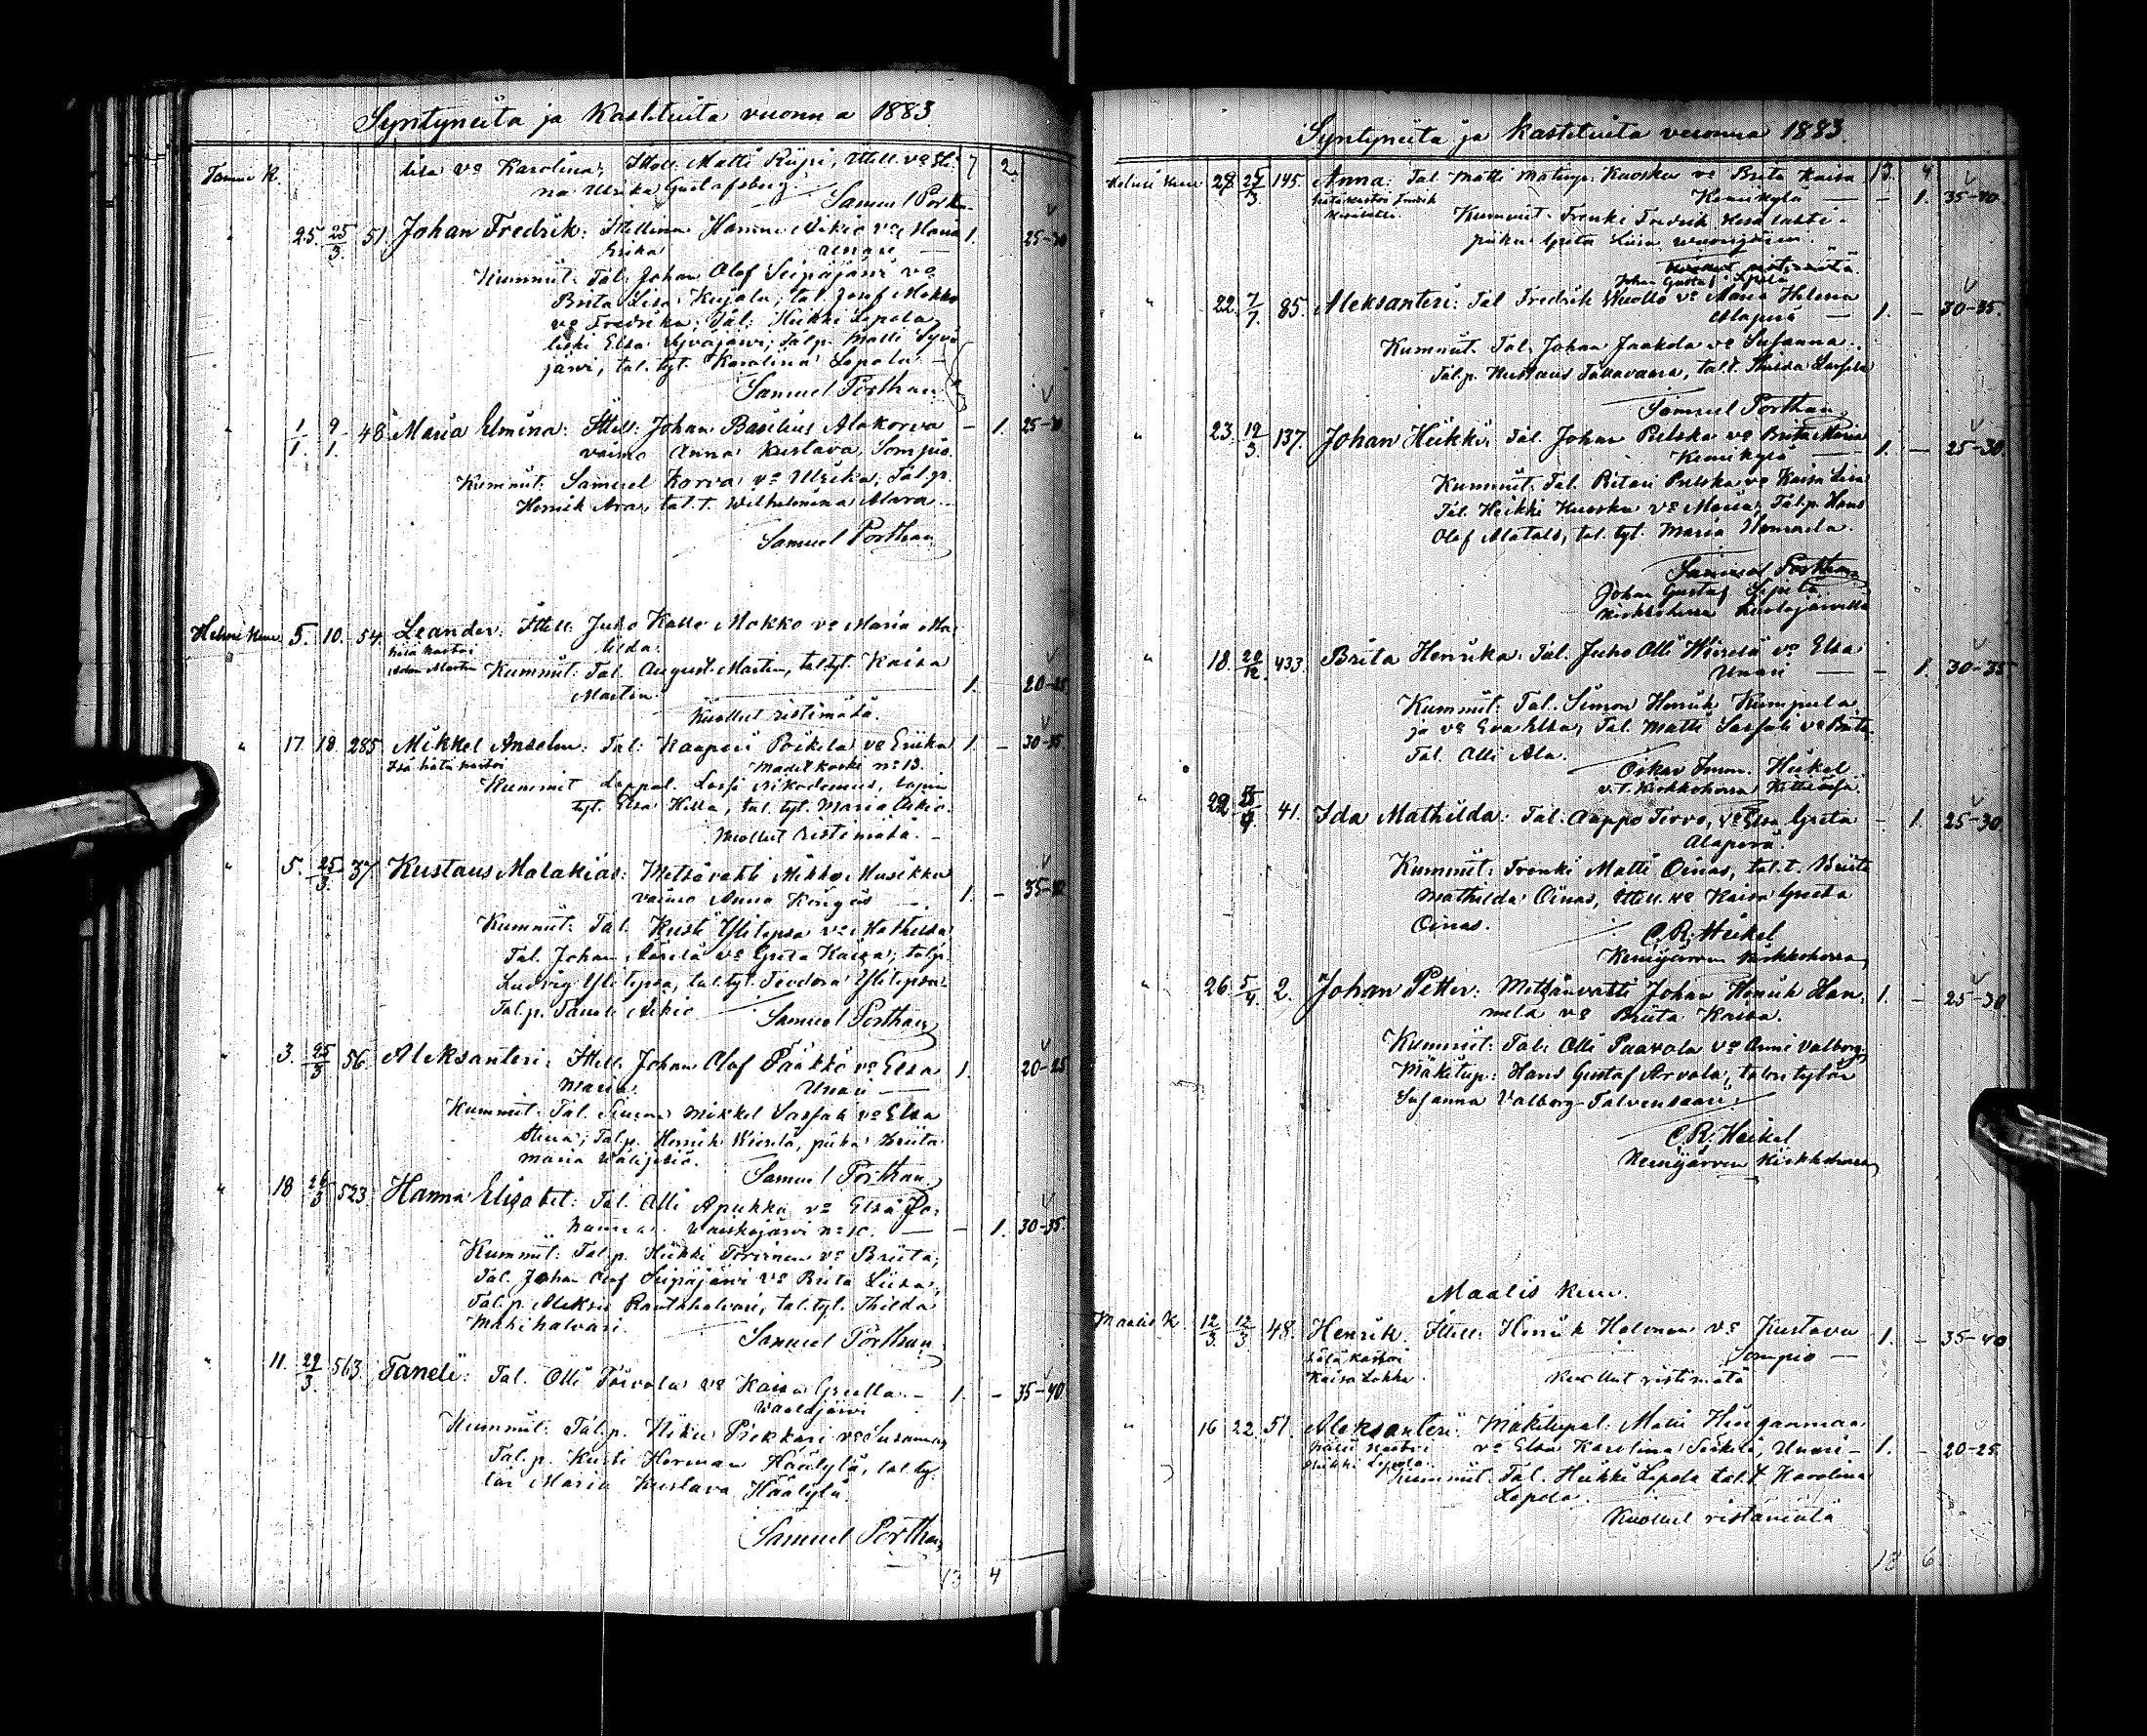 Syntyneitä ja Kastetuita vuonna 1883
Tammi K.
lisa vo Karolina; Ittell. Matti Riipi, Ittell. vo Sti: 7 2
na Ulrika Gustafsberg.
Samuel Porthan
25. 25/3. 51. Johan Fredrik: Hannu Aikio vo Maria 1. 25-30
Erika
Kummit: Tal. Johan Olof Seipäjärvi vo
Brita Lisa Kujala; tal. Josef Mokko
vo Fredrika; Tal. Heikki Lepola
leski Elsa Syväjärvi; tal.p. Matti Syvä
järvi, tal. tyt. Karolina Lepola
Samuel Porthan
1/1. 9/1. 48. Maria Elmina: Ittell. Johan Basilius Alakorva - 1. 25-30
vaimo Anna Kustava, Sompio.
Kummit: Samuel Korva vo Ulrika, Tal.p.
Henrik Ara, tal. t. Wilhelmina Alara
Samuel Porthan
Helmi kuu. 5. 10. 54. Leander: Ittell. Juho Kalle Mokko vo Maria Ma:
hätä kastoi tilda.
Adam Martin Kummit: Tal. August Martin, tal. tyt. Kaisa
Martin. 1. 20-25
Kuollut ristimätä.
" 17. 18. 285. Mikkel Anselm: Tal: Kaapperi Poikela vo Eriika 1. - 30-35
Isä hätä kastoi Madetkoski no 13.
Kummit Lappal. Lassi Nikodemus, lapin
tyt. Elsa Hilla, tal. tyt. Maria Aikio.
Kuollut ristimätä. -
" 5. 25/3. 37. Kustaus Malakias: Metsävahti Mikko Musikka
vaimo Anna Köngäs - 1. - 35-40
Kummit: Tal. Kusti Ylitepsa vo Mathilda
Tal. Johan vo Greta Kaisa; tal.p.
Ludvig Ylitepsa, tal. tyt. Teodora Ylitepsa
Tal.p. Taneli Aikio
Samuel Porthan
" 3. 25/3 56. Aleksanteri: Ittell. Johan Olof Pääkkö vo Elsa 1. 20-25
Maria. Unari -
Kummit: Tal. Simon Mikkel Sassali vo Elsa
Stina; Tal.p. Henrik Wiirelä, piika Briita
Maria
Samuel Porthan
" 18 26/3 523. Hanna Elisabet: Tal. Olli Apukka vo Elsa Jo:
hanna. Waiskojärvi no 10. - - 1. 30-35.
Kummit: Tal.p. Heikki Törmänen vo Briita;
Tal. Johan Olof Seipäjärvi vo Brita Liisa;
Tal.p. Aleksi Rautahalvari, tal. tyt. Thilda
Mäkihalvari.
Samuel Porthan
" 11. 29/3. 563. Taneli: Tal. Olli Törvola vo Kaisa Greetta - 1. - 35-40.
Waalajärvi
Kummit: Tal.p. Niku Piekkari vo Susanna,
Tal.p. Kusti Herman Häätylä, tal. ty:
tär Maria Kustava Häätylä.
Samuel Porthan
13 4
Syntyneitä ja kastetuita vuonna 1883.
Helmi kuu 28. 27/3. 145. Anna: Tal. Matti Matinp. Kuoska vo Brita Kaisa 13. 4
hätäkastoi Fredrik Kemikylä - - 1. 35-40
Kummit: Frenki Fredrik
piika Greta Liisa
Johan Gustaf Lipeta
" 22. 7/7. 85. Aleksanteri: Tal Fredrik Wuollo vo Maria Helena
Alaperä - 1. - 30-35.
Kummit. Tal. Johan Jaakola vo Susanna
Tal.p. Kustaus Takavaara, tal.t. Thilda
Samuel Porthan
" 23. 19/3. 137. Johan Heikki: Tal. Johan Pulska vo Brita Maria
Kemikylä - 1. - 25-30.
Kummit: Tal. Pietari Pulska vo Kaisa Lisa
Tal. Heikki Kuoska vo Maria, Tal.p. Hans
Olof Alatalo, tal. tyt. Maria Hannula.
Samuel Porthan
Johan Gustaf Lipeta
Kirkkoherra Kuolajärvellä
" 18. 20/12. 433. Brita Henrika: Tal. Juho Olli Wiirelä vo Elsa
Unari - - 1. 30-35
Kummit: Tal. Simon Henrik Kumpula
ja vo Eva Elsa, Tal. Matti Sassali vo Brita
Tal. Olli Ala.
Oskar Imm. Heikel
v.t. Kirkkoherra Kittilässä
" 22 41. Ida Mathilda: Tal. Aappo Tervo, vo Elsa Greta - 1. 25-30.
Alaperä.
Kummit: Frenki Matti Oinas, tal. t. Briita
Mathilda Oinas, Ittell. vo Kaisa Greeta
Oinas.
C. R. Heikel
Kemijärven Kirkkoherra
" 26. 5/4. 2. Johan Petter: Metsänvahti Johan Henrik Han: 1. - 25-30
nula vo Briita Kaisa.
Kummit: Tal. Olli Paavola vo Anni Valborg
Mäkitup: Hans Gustaf Arvola, talon tytär
Susanna Valborg Talvensaari.
C. R. Heikel
Kemijärven Kirkkoherra
Maalis kuu.
Maalis K. 12/3. 12/3. 48. Henrik. Ittell. Henrik Halonen vo Kustava 1. - 35-40
hätä kastoi Sompio -
Kaisa Lokka. Kuollut ristimätä
" 16 22. 51. Aleksanteri: Mäkitupal. Matti
hätä kastoi vo Elsa Karolina Unari - 1. - 20-25.
Heikki Lepola. Kummit. Tal. Heikki Lepola tal.t. Karolina
Lepola.
Kuollut ristimätä
18 6